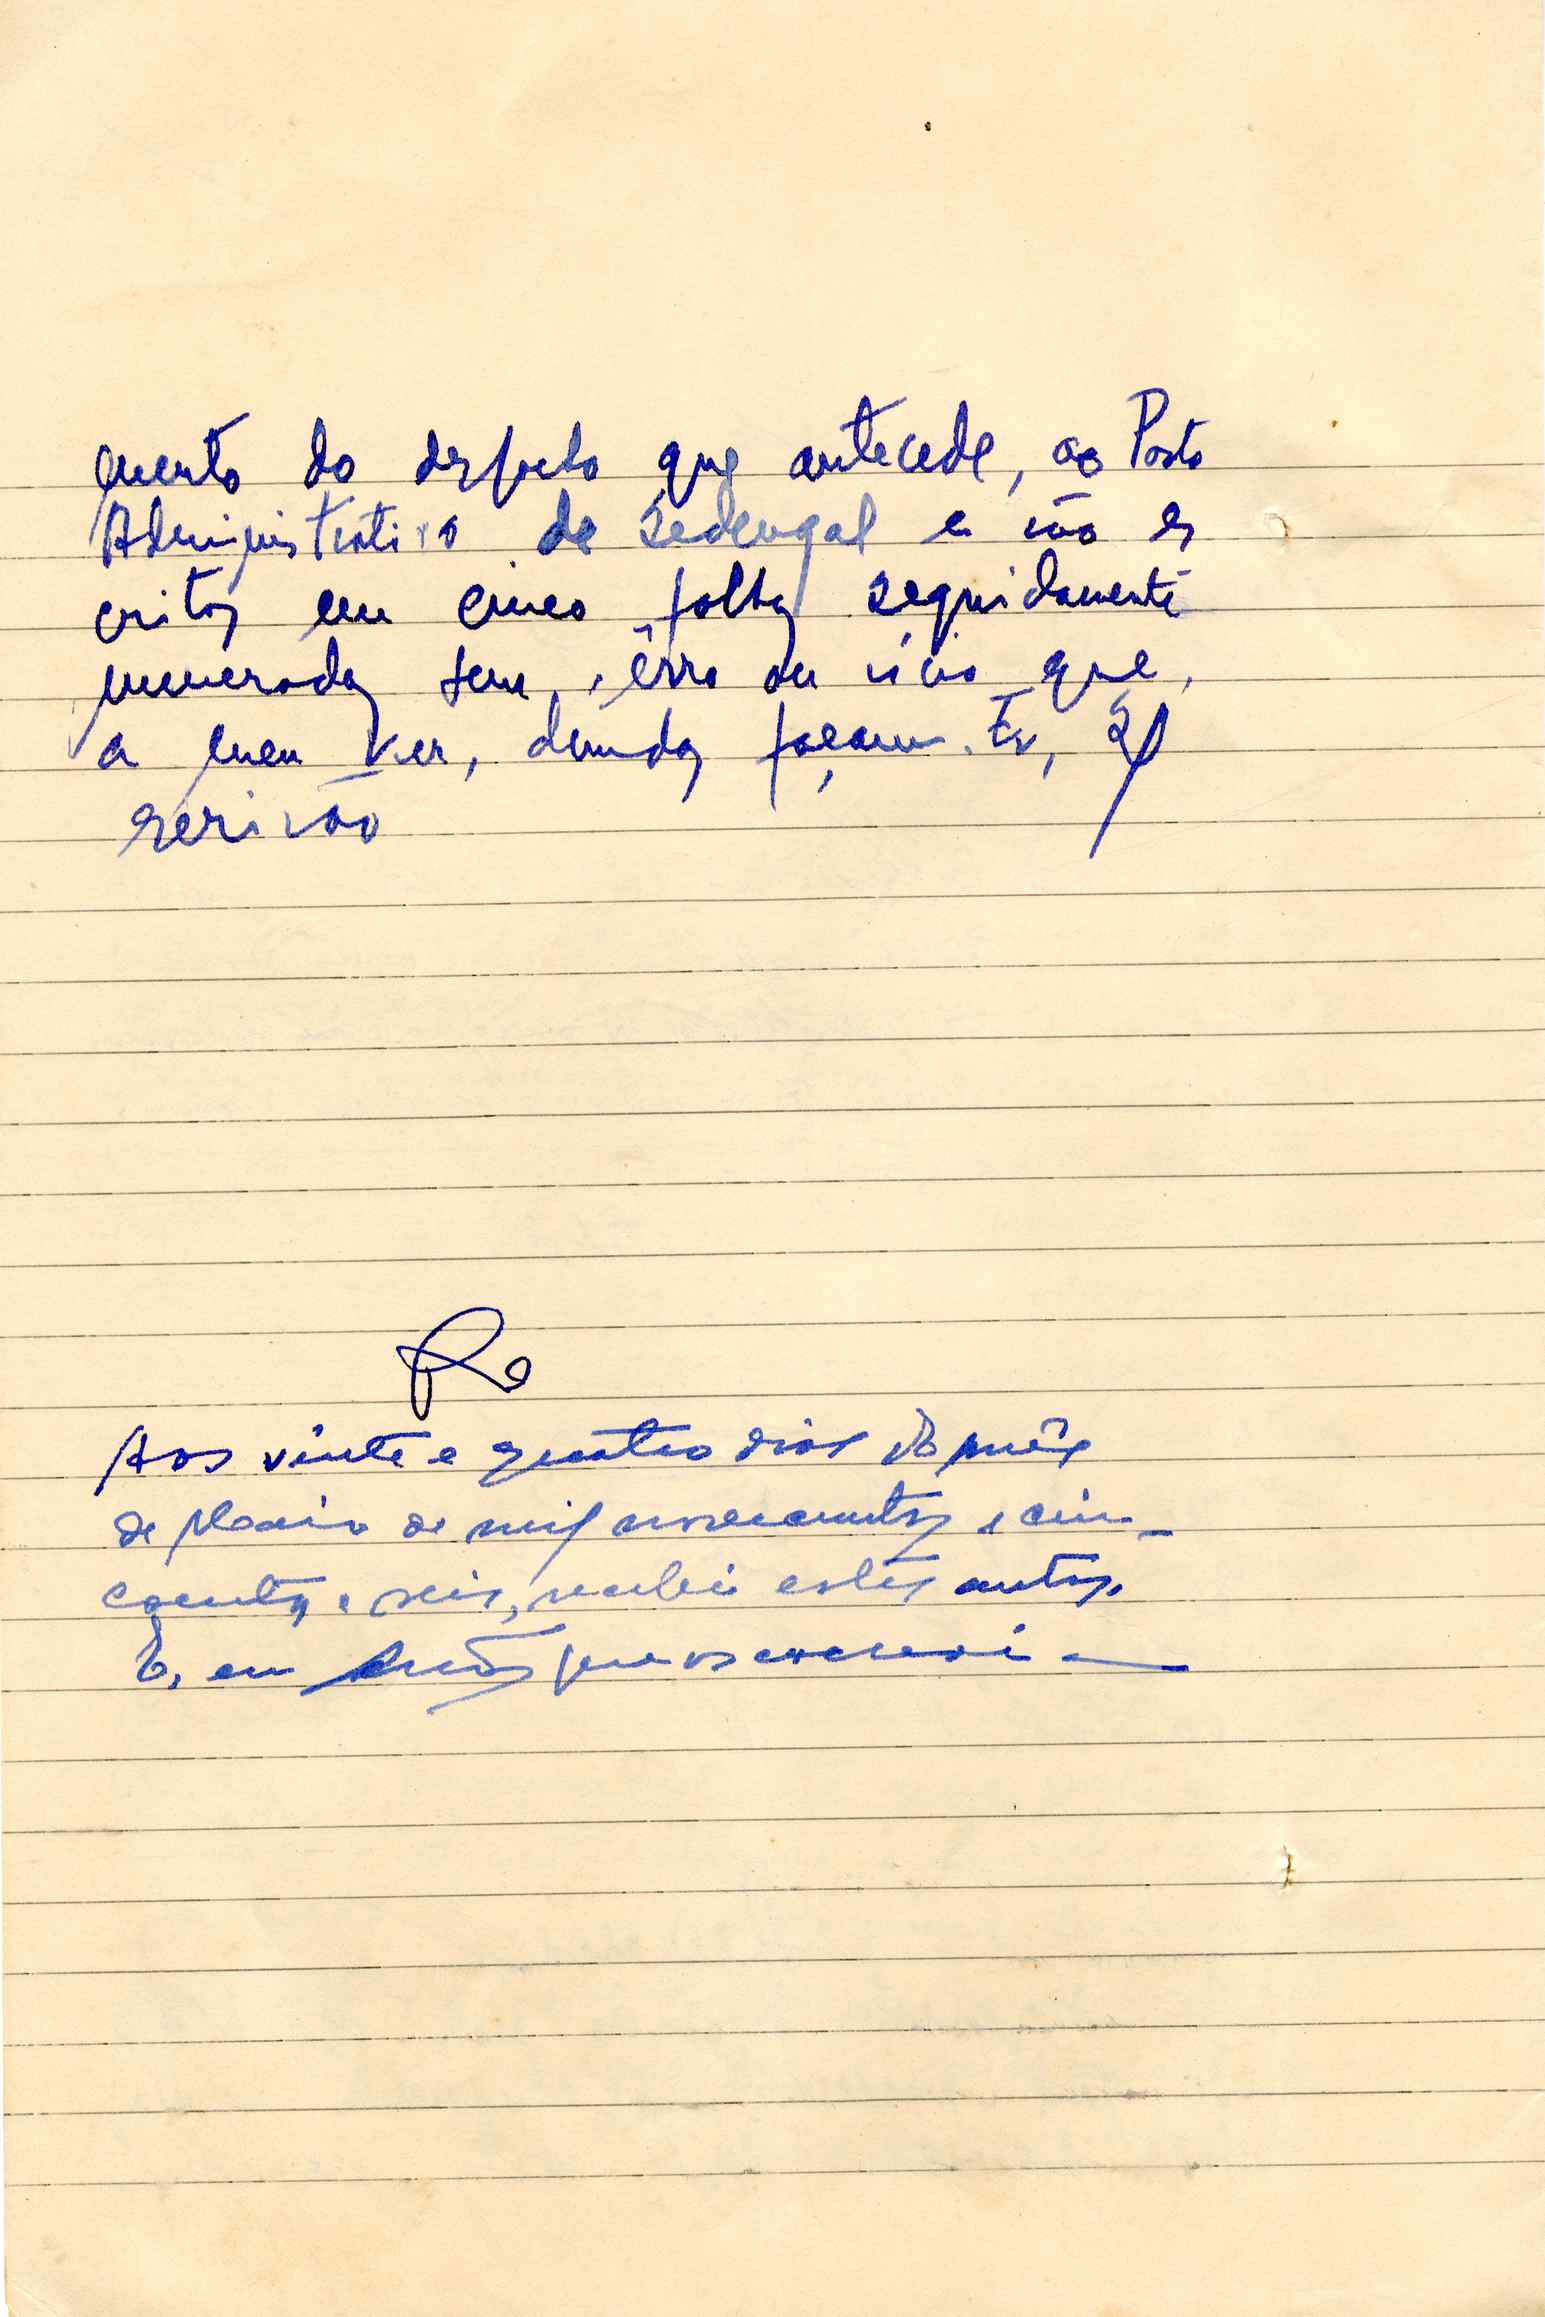 mento do despacho que antecede, ao Posto
Administrativo de Sedengal e vão es
critos em cinco folhas seguidamente
numeradas sem êrro ou vício que,
a meu ver, dúvidas façam. Eu,
escrivão
Aos vinte e quatro dias do mês
de Maio de mil novecentos e cin-
coenta e seis, recebi estes autos.
E, eu que os escrevi